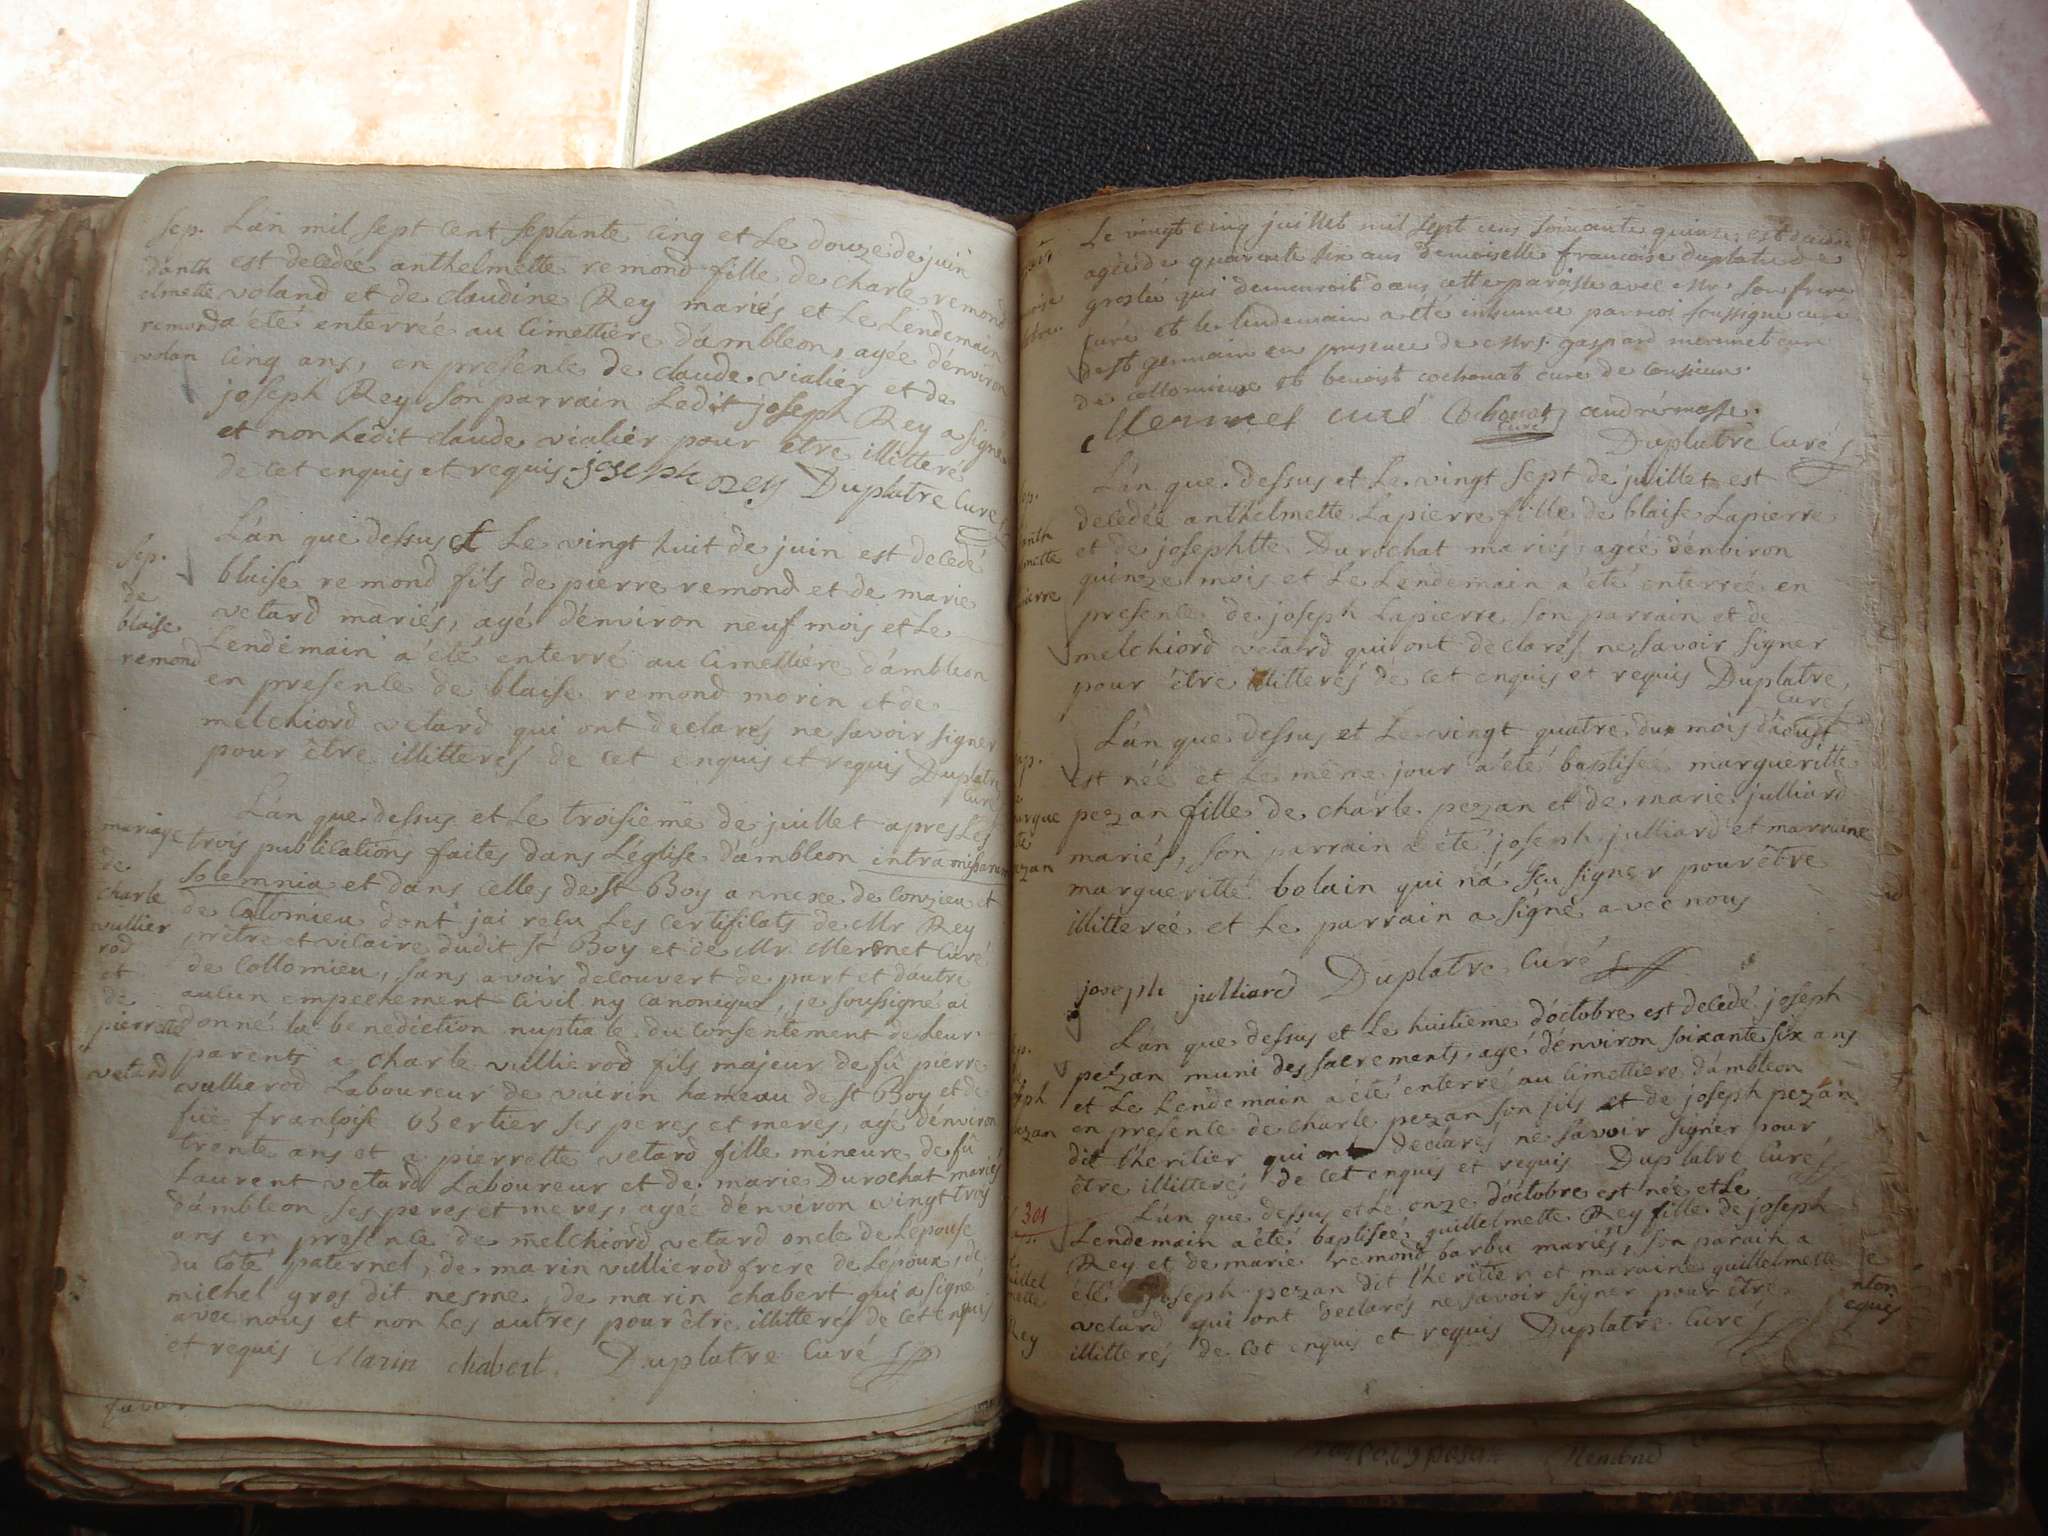 sep.
d'anth
elmette
remond
volan
L'an mil sept cent septante cinq et le douze de juin
est decedée anthelmette remond fille de charle remond
voland et de claudine Rey mariés et le lendemain
a été enterrée au cimettière d'ambleon, agée d'environ
cinq ans, en presence de claude vialier et de
joseph Rey son parrain ledit joseph Rey a signé
et non ledit claude vialier pour être illitteré
de cet enquis et requis joseph rey Duplatre Curé
sep.
de
blaise
remond
L'an que dessus et le vingt huit de juin est decedé
blaise remond fils de pierre remond et de marie
vetard mariés, agé d'environ neuf mois et le
lendemain a été enterré au cimettière d'ambleon
en presence de blaise remond morin et de
melchiord vetard qui ont declarés ne savoir signer
pour être illitterés de cet enquis et requis Duplatre
Curé
mariage
de
charle
vullier
rod
et
de
pierrette
vetard
L'an que dessus et le troisieme de juillet apres les
trois publications faites dans l'église d'ambleon intra missarum
solemnia et dans celles de st Boy annexe de Conzieu et
de Collomieu dont j'ai recu les certificats de Mr Rey
prêtre et vicaire dudit st Boy et de Mr Mermet Curé
de Collomieu, sans avoir decouvert de part et d'autre
aucun empechement civil ny canonique, je soussigné ai
donné la benediction nuptiale du consentement de leur
parents a charle vullierod fils majeur de fû pierre
vullierod laboureur de vairin hameau de st Boy et de
fuë françoise Bertier ses peres et meres, agé d'environ
trente ans et a pierrette vetard fille mineure de fû
laurent vetard laboureur et de marie Durochat mariés
d'ambleon ses peres et meres, agée d'environ vingt trois
ans en presence de melchiord vetard oncle de l'epouse
du côté paternel, de marin vullierod frere de l'epoux, de
michel gros dit nesme, de marin chabert qui a signé
avec nous et non les autres pour être illitterés de cet enquis
et requis Marin chabert Duplatre Curé
Le vingt cinq juillet mil sept cens soixante quinze est decedée
agée de quarente six ans demoiselle francoise duplatre de
groslée qui demeuroit dans cette paroisse avec Mr son frere
curé et le lendemain a été inhumée par moi soussigné curé
de st germain en presence de Mrs gaspard mermet curé
de collomieux et benoist cochonat curé de consieux.
Mermet curé Cochonat andrémasse.
curé
Duplatre Curé
sep.
anth
mette
pierre
L'an que dessus et le vingt sept de juillet est
decedée anthelmette Lapierre fille de blaise Lapierre
et de josephtte Durochat mariés agée d'environ
quinze mois et le lendemain a été enterrée en
presence de joseph Lapierre son parrain et de
melchiord vetard qui ont declarés ne savoir signer
pour être illitterés de cet enquis et requis Duplatre,
Curé
L'an que dessus et le vingt quatre du mois d'aoust
est née et le même jour a été baptisée margueritte
pezan fille de charle pezan et de marie julliard
mariés, son parrain a été joseph julliard et marraine
margueritte bolain qui n'a sçu signer pour être
illitterée et le parrain a signé avec nous
joseph julliard Duplatre Curé
L'an que dessus et le huitieme d'octobre est decedé joseph
pezan muni des sacrements, agé d'environ soixante six ans
et le lendemain a été enterré au cimettiere d'ambleon
en presence de charle pezan son fils et de joseph pezan
dit l'heritier qui ont declarés ne savoir signer pour
être illitterés de cet enquis et requis Duplatre Curé
301
L'an que dessus et le onze d'octobre est née et le
lendemain a été baptisée guillelmette Rey fille de joseph
Rey et de marie remond barbu mariés, son parain a
été joseph pezan dit l'heritier et maraine guillelmette
vetard qui ont declarés ne savoir signer pour être
illitterés de cet enquis et requis Duplatre Curé
Rey